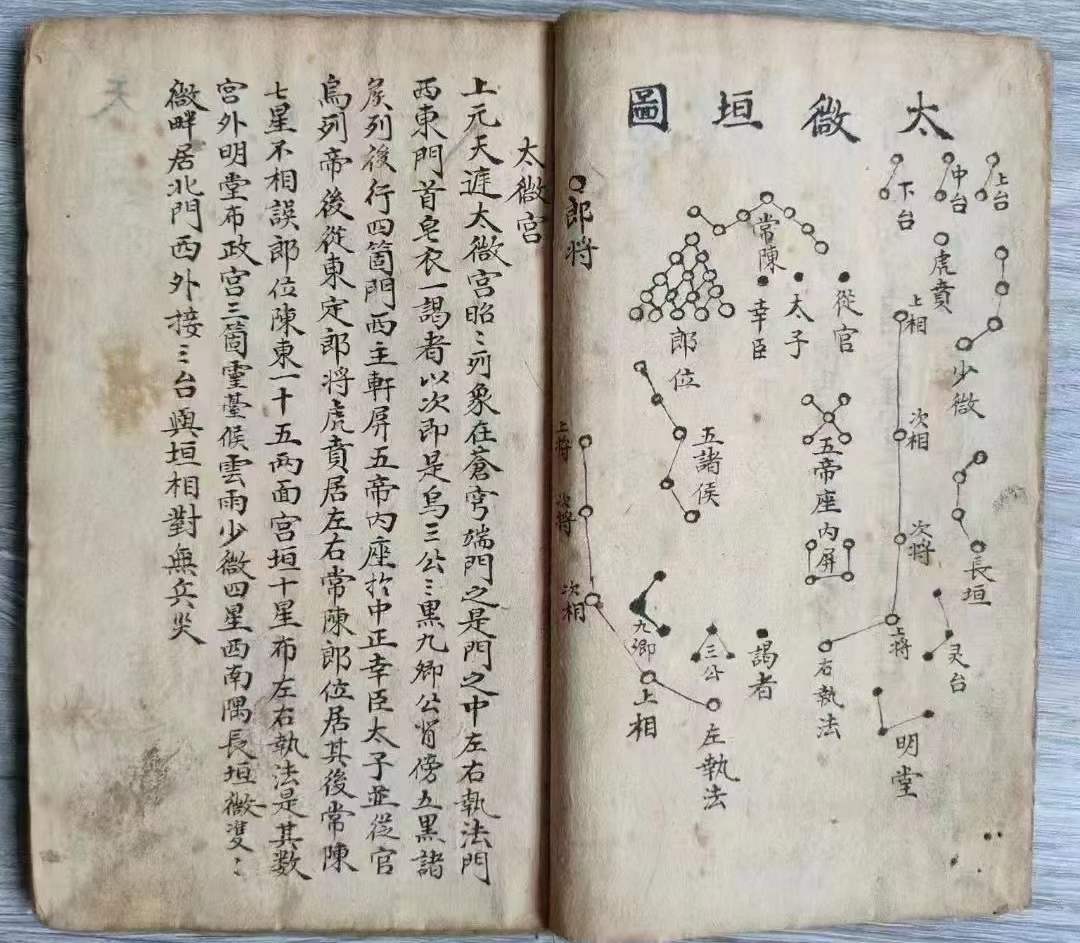 太微垣圖
上台
中台
下台
虎賁
少微
長垣
灵台
明堂
上相
次相
次將
上將
右執法
常陳
從官
太子
幸臣
郎位
五帝座
內屏
五諸侯
謁者
三公
九卿
左執法
上相
郎将
上將
次將
次相
太微宮
上元天遅太微宮昭〻列象在蒼穹端門之是門之中左右執法門
西東門首皂衣一謁者以次即是烏三公〻黑九卿公背傍五黑諸
侯列後行四箇門西主軒屏五帝內座扵中正幸臣太子並從官
烏列帝後從東定郎將虎賁居左右常陳郎位居其後常陳
七星不相誤郎位陳東一十五両面宮垣十星布左右執法是其数
宮外明堂布政宮三箇靈臺候雲雨少微四星西南隅長垣微雙〻
微畔居北門西外接三台與垣相對無兵災
天